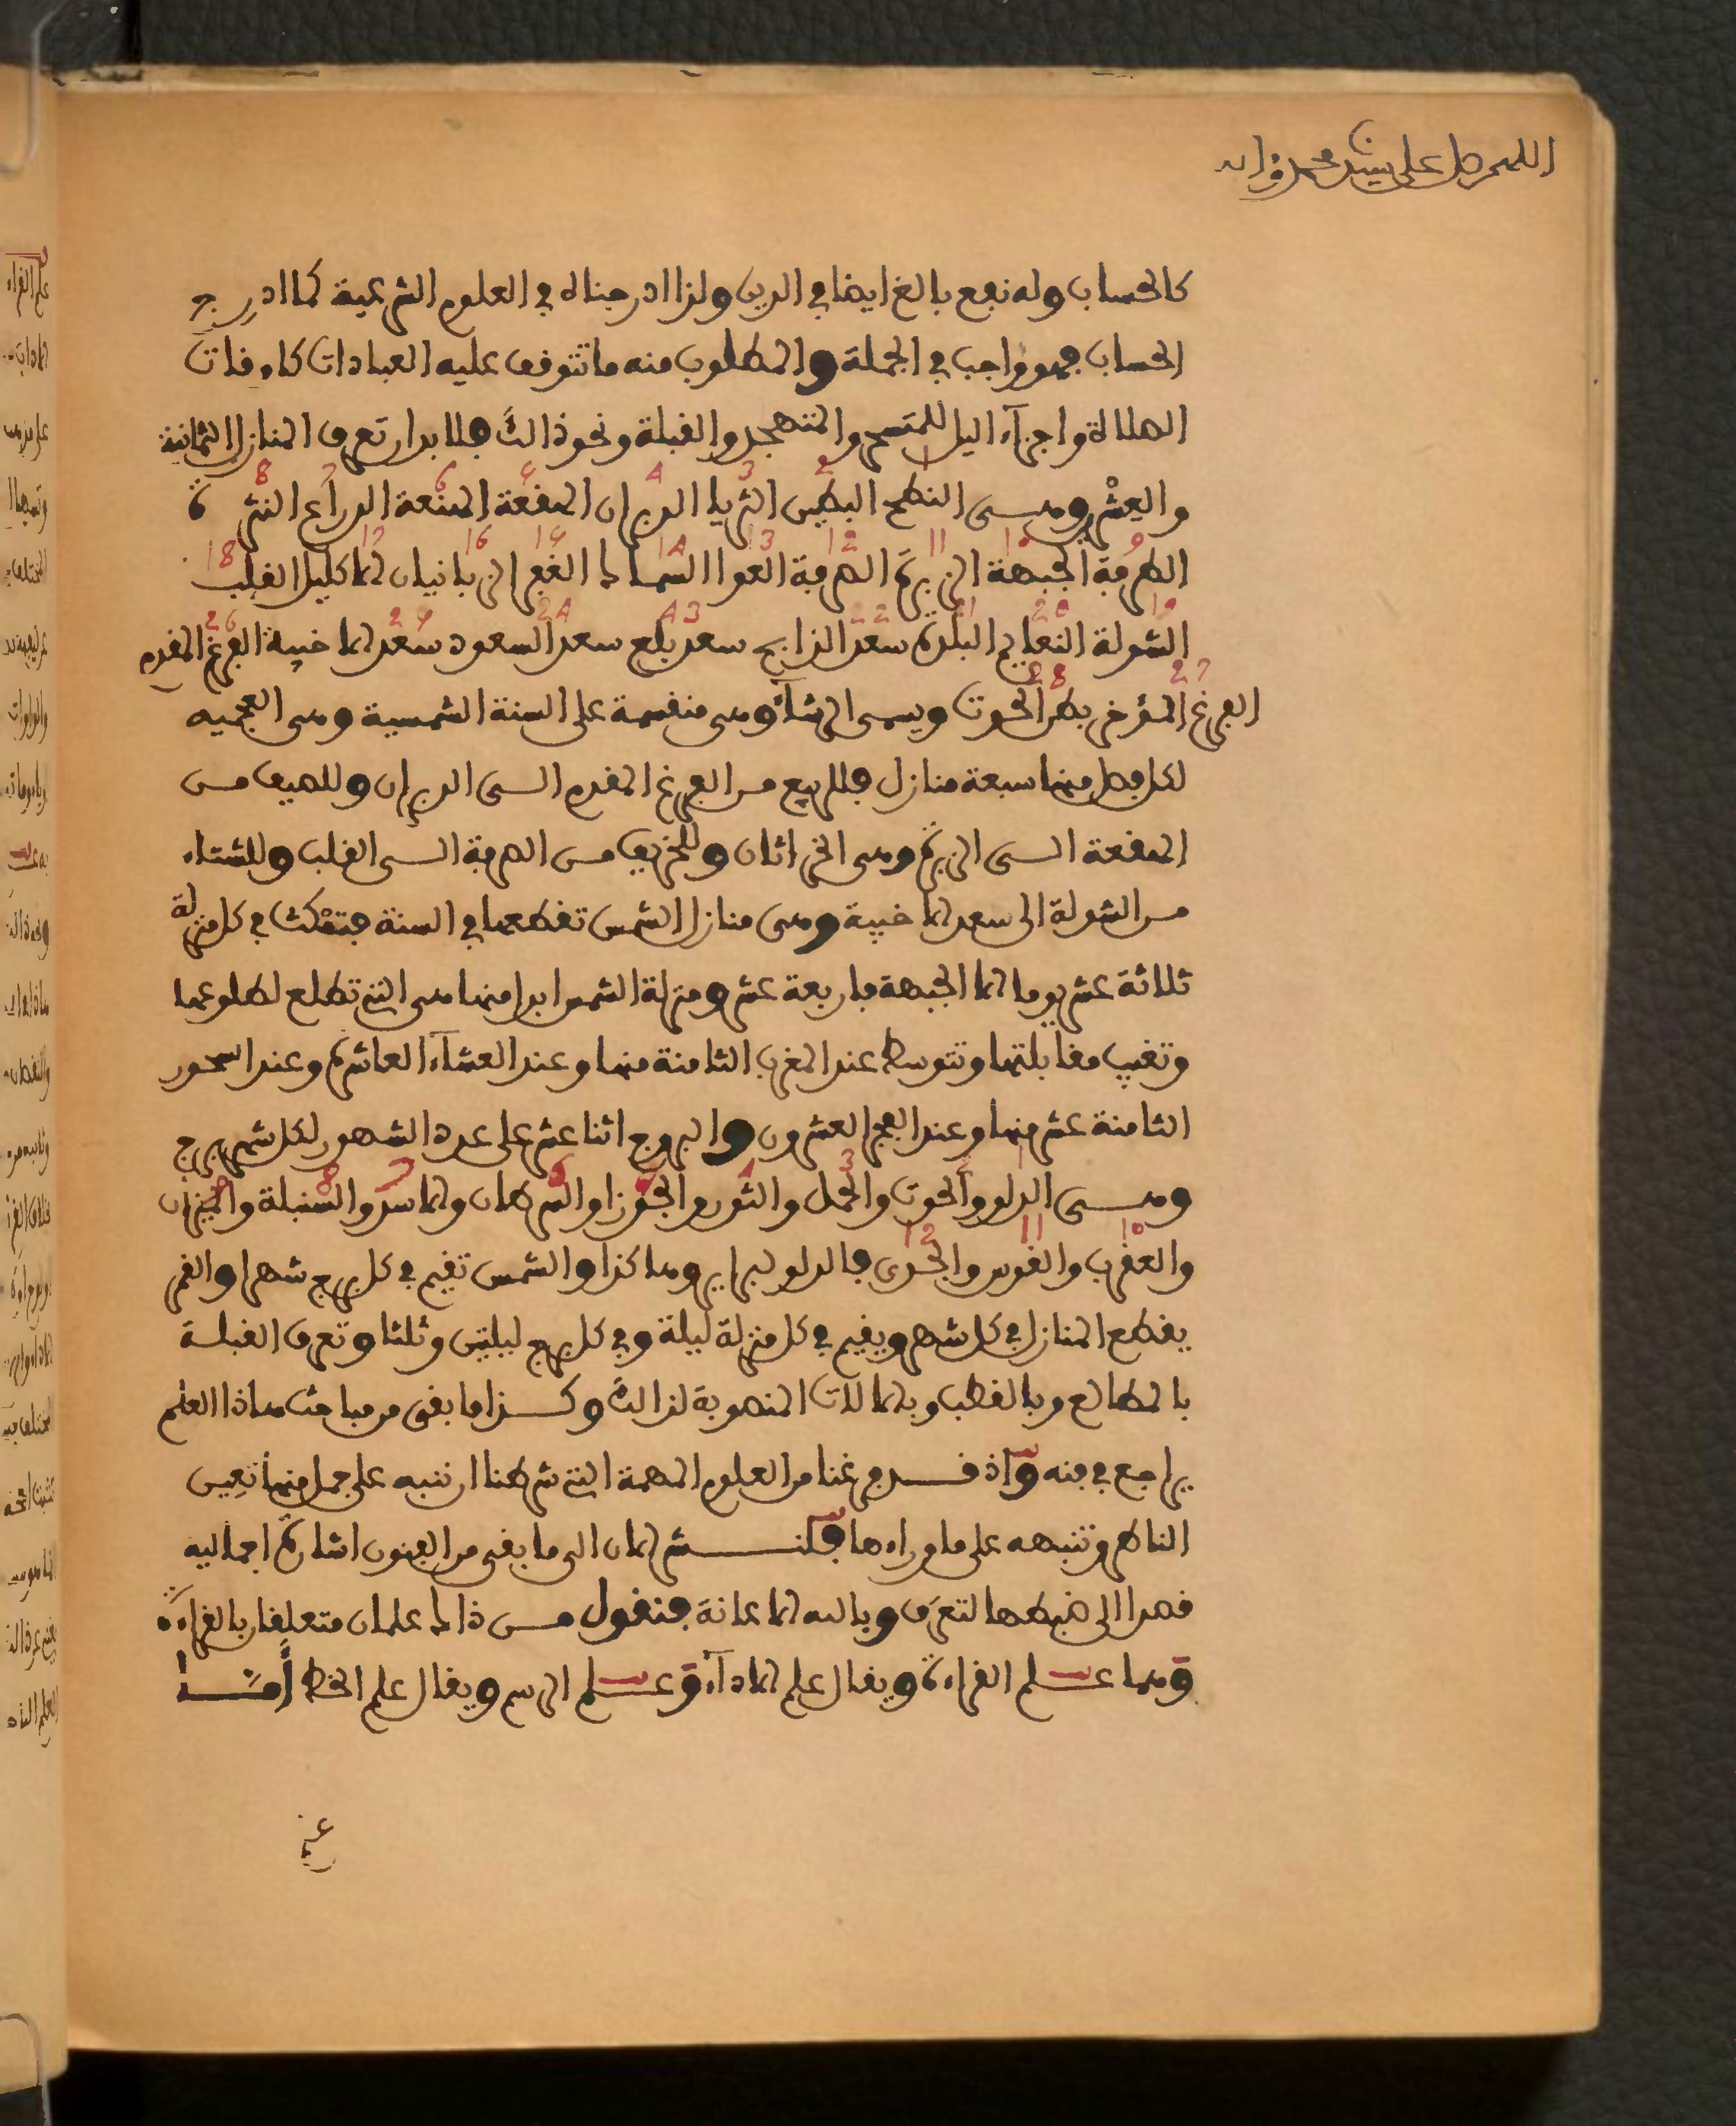 اللهم صل على سيدنا محمد وءاله
كالحساب وله نفع بالغ ايضا في الدين ولذا ادرجناه في العلوم الشرعية كما ادرج
الحساب فهو واجب في الجملة والمطلوب منه ما تتوقف عليه العبادات كاوقات
الصلاة واجزآء اليل للمتسحر والمتهجد والقبلة ونحو ذالك فلا بد ان تعرف المنازل الثمانية
والعشرين وهي النطح البطين الثريا الدبران الهقعة الهنعة الذراع النثرة
الطرفة الجبهة الزبرة الصرفة العوا السماك الغفر الزبانيان الاكليل القلب
الشولة النعايم البلدة سعد الذابح سعد بلع سعد السعود سعد الاخبية الفرغ المقدم
الفرغ المؤخر بطن الحوت ويسمى الرشآء وهي منقسمة على السنة الشمسية وهي العجميه
لكل فصل منها سبعة منازل فللربيع من الفرغ المقدم الى الدبران وللصيف من
الهقعة الى الزبرة وهي الخراثان وللخريف من الصرفة الى القلب وللشتاء
من الشولة الى سعد الاخبية وهي منازل الشمس تقطعها في السنة فتمكث في كل منزلة
ثلاثة عشر يوما الا الجبهة فاربعة عشر ومنزلة الشمس ابدا منها هي التي تطلع لطلوعها
وتغيب مقابلتها وتتوسط عند المغرب الثامنة منها وعند العشآء العاشرة وعند السحور
الثامنة عشر منها وعند الفجر العشرون والبروج اثنا عشر على عدد الشهور لكل شهر برج
وهي الدلو والحوت والحمل والثور والجوزا والسرطان والاسد والسنبلة والميزان
والعقرب والقوس والجدي فالدلو لبراير وهاكذا والشمس تقيم في كل برج شهرا والقمر
يقطع المنازل في كل شهر ويقيم في كل منزلة ليلة وفي كل برج ليلتين وثلثا وتعرف القبلة
بالمطالع وبالقطب وبالآلات المنصوبة لذالك وكذا ما بقي من مباحث هاذا العلم
يراجع في فنه واذ قد فرغنا من العلوم المهمة التي شرطنا ان ننبه على جمل منها تعين
الناظر وتنبهه على ما وراءها فلنشر الان الى ما بقي من الفنون اشارة اجماليه
قصدا الى ضبطها لتعرف وبالله الاعانة فنقول من ذالك علمان متعلقان بالقراءة
وهما علم القراءة ويقال علم الادآء وعلم الرسم ويقال علم الخط أمّا